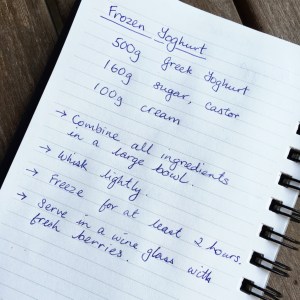 Frozen Yoghurt
500g greek Yoghurt
160g sugar, castor
100g cream
→ Combine all ingredients
in a large bowl.
→ Whisk lightly.
→ Freeze for at least 2 hours.
→ Serve in a wine glass with
fresh berries.